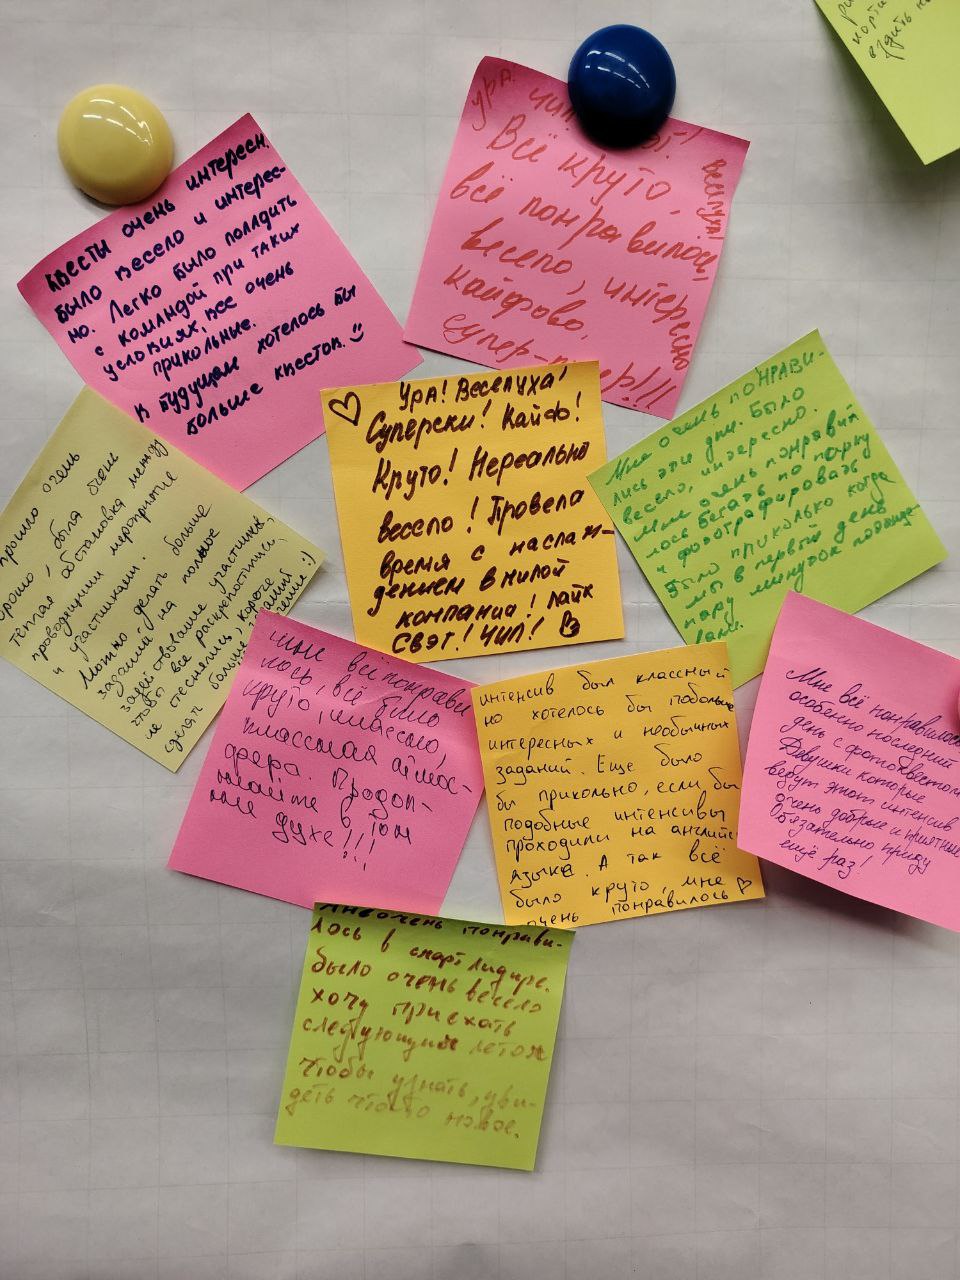 Квесты очень интересн.
было весело и интерес-
но. Легко было поладить
с командой при таких
условиях, все очень
прикольные.
В будущем хотелось бы
больше квестов.
Ура! Чил!
Веселуха!
Всё круто,
всё понравилось,
весело, интересно
кайфово,
супер-
прошло очень
была очень
тёплая обстановка между
проводящими мероприятие
и участниками.
Можно делать больше
заданий на полное
задействование участников,
чтобы все раскрепостились,
не стеснялись, короче
сделать больше
Ура! Веселуха!
Суперски! Кайф!
Круто! Нереально
весело! Провела
время с наслаж-
дением в милой
компании! Лайк
Свэг! Чил!
Мне очень понрави-
лись эти дни. Было
весело, интересно.
Мне очень понравил
лось бегать по парку
и фотографировать
Было прикольно когда
мы в первый день
пару минуток
мне всё понрави
лось, всё было
круто, классно,
классная атмос-
фера. Продол-
жайте в том
же духе!!!
интенсив был классный
но хотелось бы побольше
интересных и необычных
заданий. Еще было
бы прикольно, если бы
подобные интенсивы
проходили на английс
языке. А так всё
было круто, мне
очень понравилось
Мне всё понравилось
особенно последний
день с фотоквестом
Девушки которые
ведут этот интенсив
очень добрые и приятные
Обязательно приду
ещё раз!
Мне очень понрави-
лось в смартлидере.
было очень весело
хочу приехать
следующим летом
чтобы узнать, уви-
деть что-то новое.